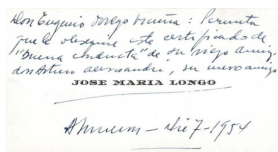 Don Eugenio Orrego Vicuña: Permita
que le obsequie este certificado de
"buena conducta" de su viejo amigo
don Arturo Alessandri, su nuevo amigo
JOSE MARIA LONGO
Dic 7-1954